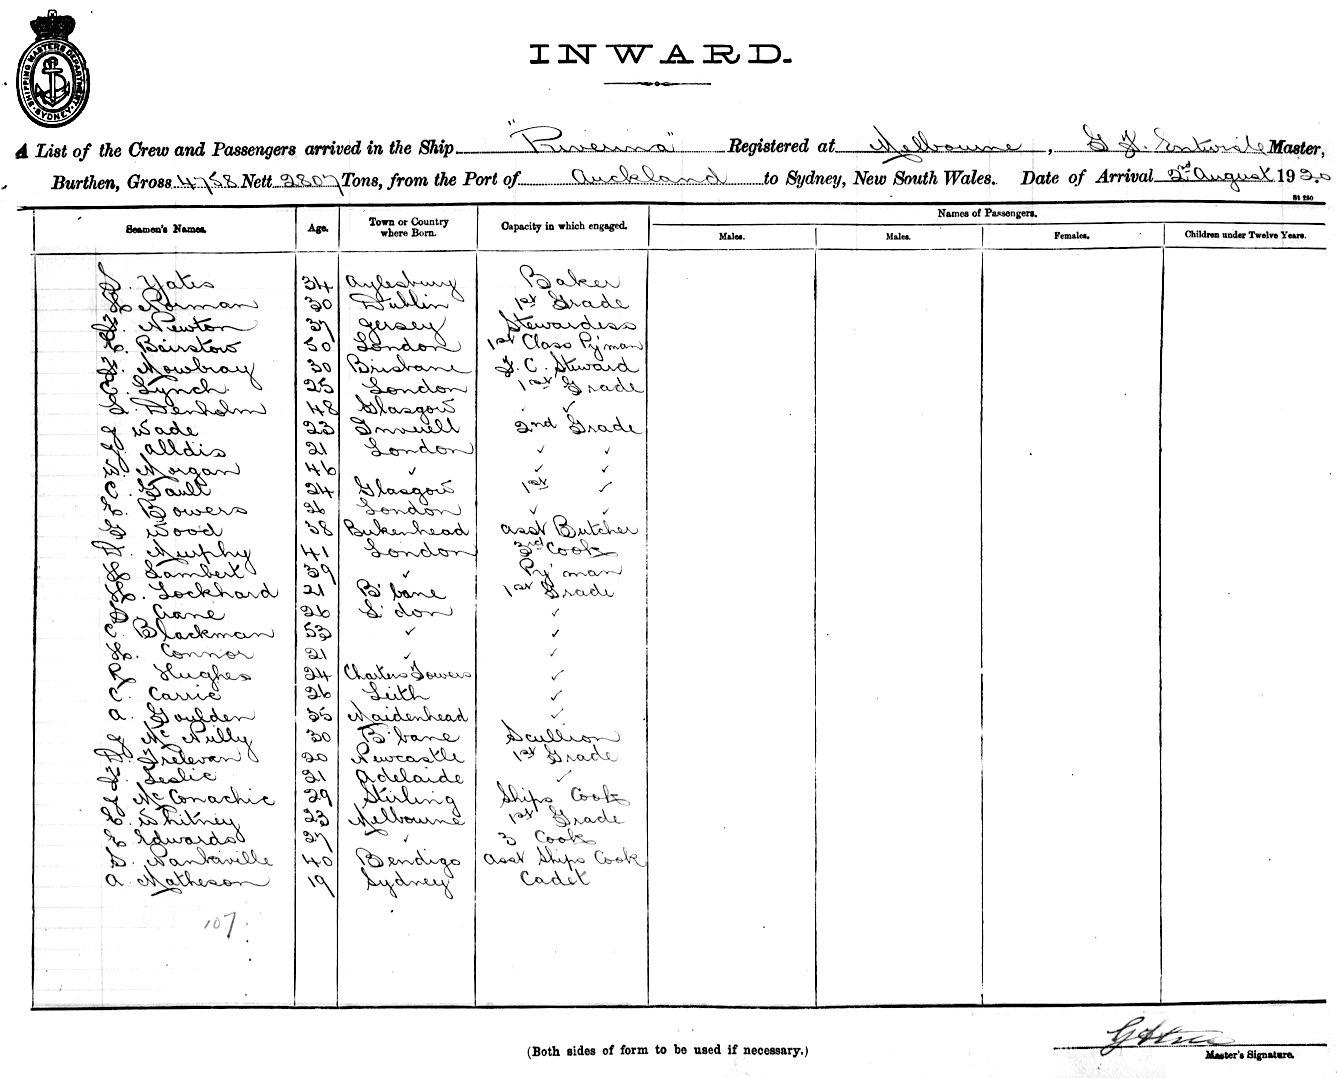 SHIPPING MASTERS DEPARTMENT
SYDNEY
INWARD.
A List of the Crew and Passengers arrived in the Ship "Riverina" Registered at Melbourne, G. Entwisle Master,
Burthen, Gross 4758 Nett 2807 Tons, from the Port of Auckland to Sydney, New South Wales. Date of Arrival 2nd August 1920
St 230
Seamen's Names. Age. Town or Country where Born. Capacity in which engaged. Names of Passengers.
Males. Males. Females. Children under Twelve Years.
Yates 34 Aylesbury Baker
Norman 30 Dublin 1st Grade
Newton 37 Jersey Stewardess
Bairstow 50 London 1st Class Py'man
Mowbray 30 Brisbane F. C. Steward
Lynch 25 London 1st Grade
Denholm 48 Glasgow ✓ ✓
Wade 23 Inverell 2nd Grade
Alldis 21 London ✓ ✓
Morgan 46 ✓ ✓ ✓
C. Gault 24 Glasgow 1st ✓
Bowers 26 London ✓ ✓
Wood 38 Birkenhead Asst Butcher
Murphy 41 London 3rd Cook
Lambert 39 ✓ Py'man
Lockhard 21 B'bane 1st Grade
Crane 26 L'don ✓
C. Blackman 53 ✓ ✓
Connor 21 ✓ ✓
R. Hughes 24 Charters Towers ✓
C. Carrie 26 Leith ✓
A. Goulden 35 Maidenhead ✓
McNully 30 B'bane Scullion
Trelevan 20 Newcastle 1st Grade
Leslie 21 Adelaide ✓
McConachie 29 Stirling Ships Cook
Whitney 23 Melbourne 1st Grade
E. Edwards 27 ✓ 3 Cook
Nankiville 40 Bendigo Asst Ships Cook
A. Matheson 19 Sydney Cadet
107
(Both sides of form to be used if necessary.)
Master's Signature.